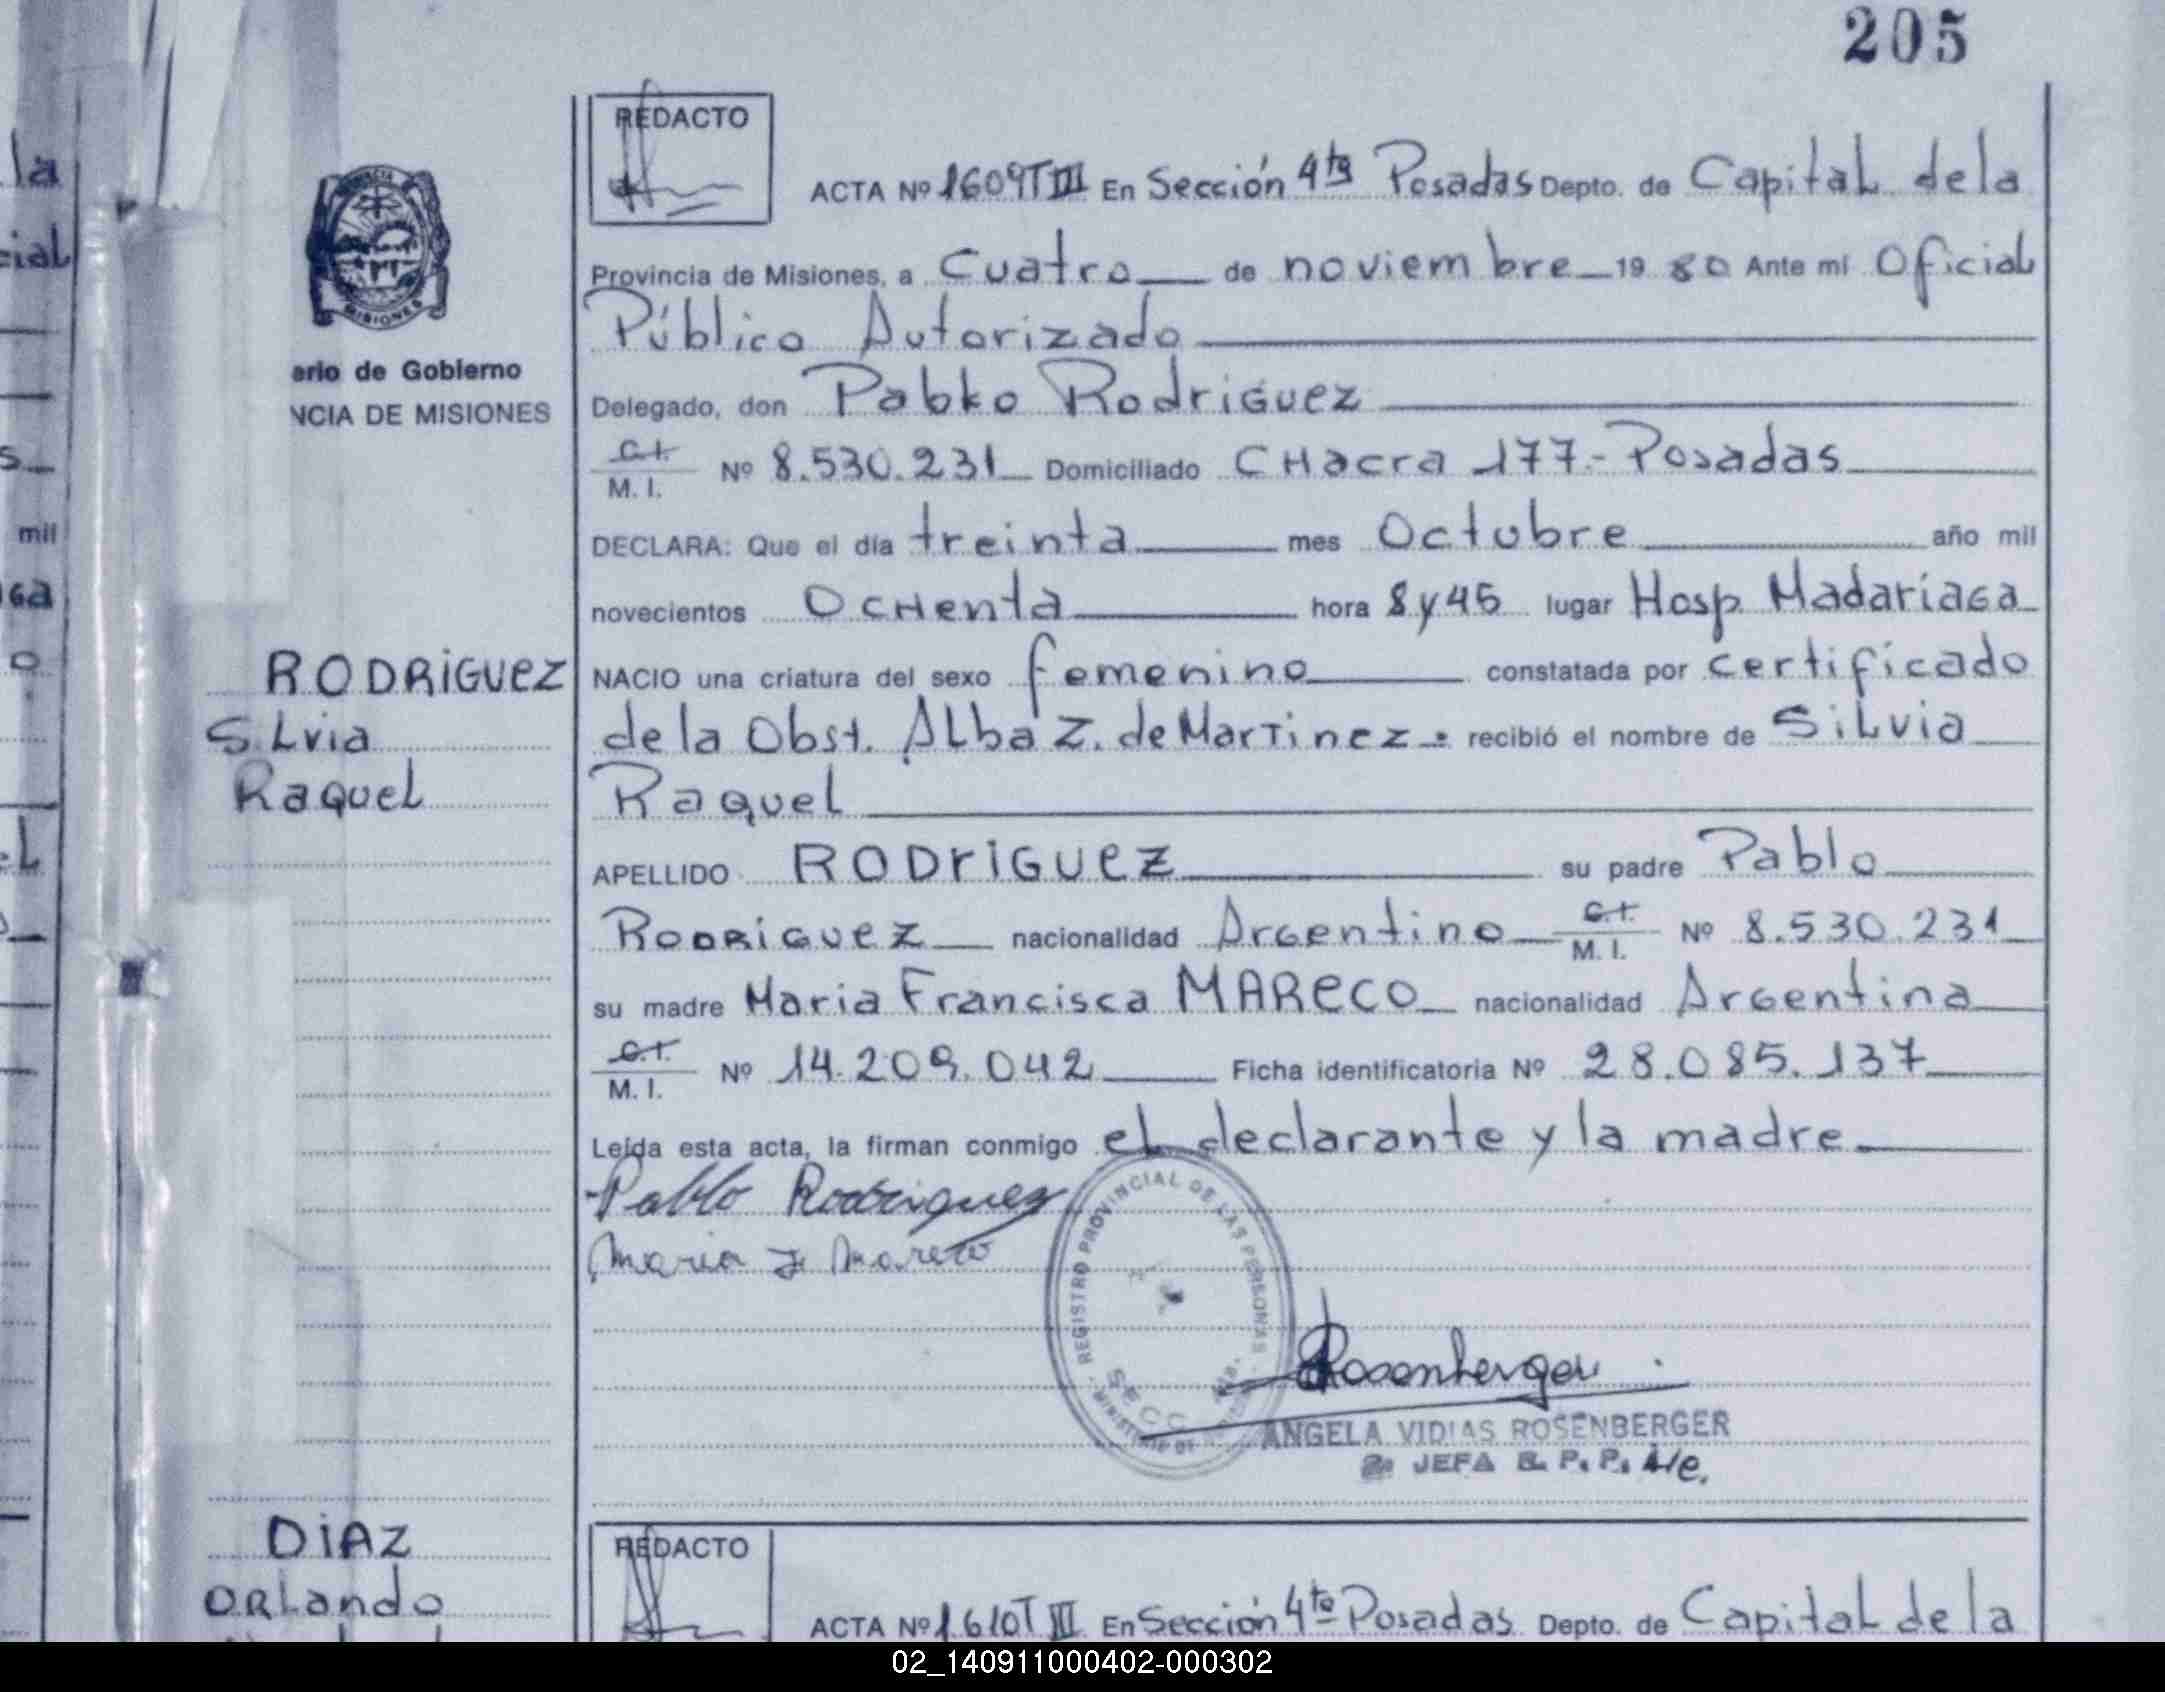 205
REDACTO
ACTA Nº 1609 T III En Sección 4ta Posadas Depto. de Capital de la
Provincia de Misiones, a Cuatro de noviembre 19 80 Ante mí Oficial
Público Autorizado
erio de Gobierno
NCIA DE MISIONES
Delegado, don Pablo Rodriguez
C.I. M. I. Nº 8.530.231 Domiciliado CHacra 177.- Posadas
DECLARA: Que el día treinta mes Octubre año mil
novecientos OcHenta hora 8 y 45 lugar Hosp Madariaga
RODRIGUEZ
Silvia
Raquel
NACIO una criatura del sexo femenino constatada por certificado
de la Obst. Alba Z. de Martinez.= recibió el nombre de Silvia
Raquel
APELLIDO RODRIGUEZ su padre Pablo
Rodriguez nacionalidad Argentino C.I. M. I. Nº 8.530.231
su madre Maria Francisca MARECO nacionalidad Argentina
C.I. M. I. Nº 14.209.042 Ficha identificatoria Nº 28.085.137
Leída esta acta, la firman conmigo el declarante y la madre
Pablo Rodriguez
Maria F Mareco
REGISTRO PROVINCIAL DE LAS PERSONAS
SECC
MINISTERIO DE
Rosenberger
ANGELA VIDIAS ROSENBERGER
JEFA R. P. P. 4te.
DIAZ
Orlando
REDACTO
ACTA Nº 1.610 T III En Sección 4ta Posadas Depto. de Capital de la
la
cial
mil
02_140911000402-000302